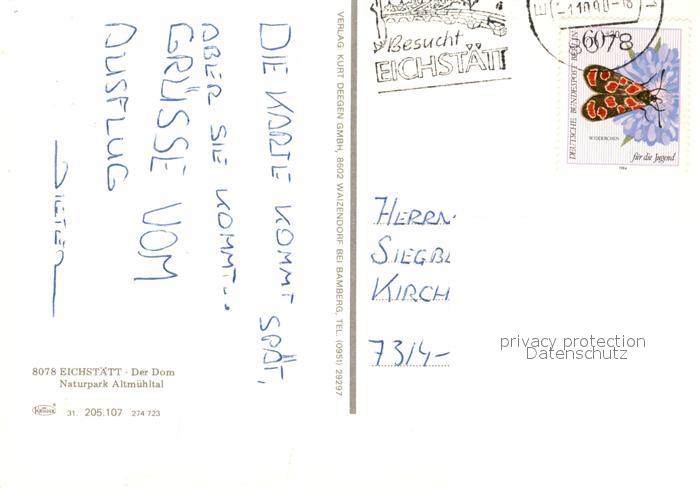 DIE KARTE KOMMT SPÄT,
ABER SIE KOMMT...
GRÜSSE VOM
AUSFLUG
DIETER
8078 EICHSTÄTT - Der Dom
Naturpark Altmühltal
KRÜGER 31. 205.107 274 723
VERLAG KURT DEEGEN GMBH, 8602 WAIZENDORF BEI BAMBERG, TEL. (0951) 29297
Besucht
EICHSTÄTT
8078
60
DEUTSCHE BUNDESPOST BERLIN
WIDDERCHEN
für die Jugend
1984
HERRN
SIEGBL
KIRCH
7314-
privacy protection
Datenschutz